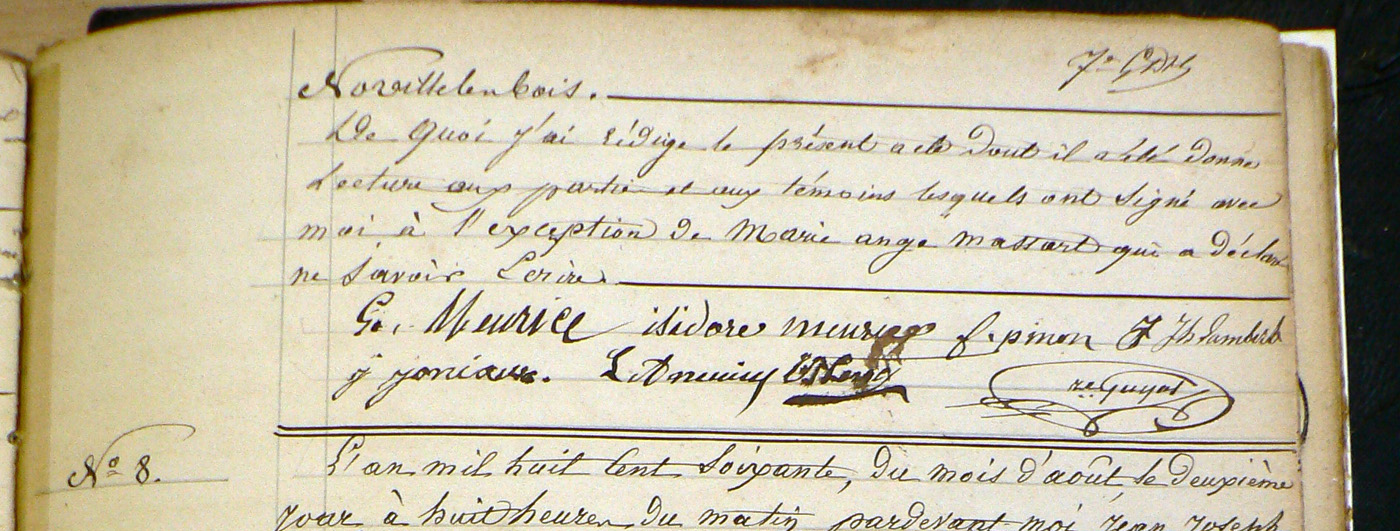 Novillelenbois.
De Quoi j'ai rédige le présent acte Dont il a été donné
Lecture aux partie et aux témoins lesquels ont Signé avec
moi à l'exception de Marie ange massart qui a déclaré
ne Savoir Ecrire.
G. Meurice isidore meurice f. pinon J Jh Lambert
j joniaux. L Guyot
N° 8.
L'an mil huit Cent Soixante, du mois d'août le Deuxième
Jour à huit heures du matin pardevant moi Jean Joseph